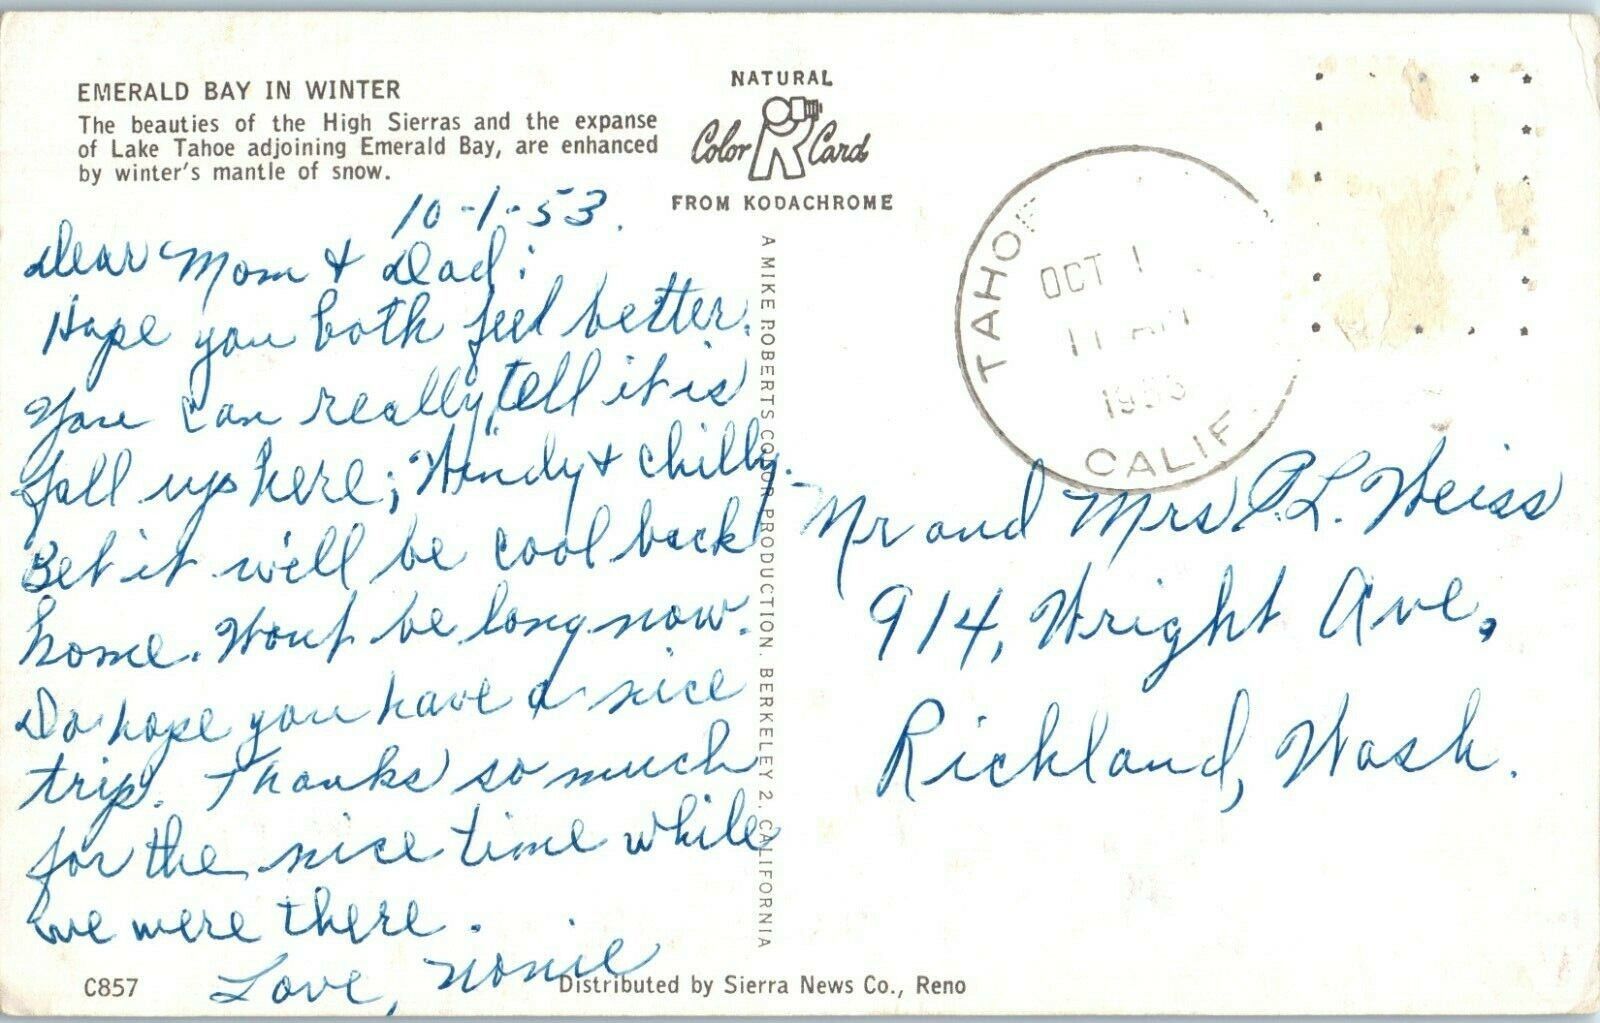 EMERALD BAY IN WINTER
The beauties of the High Sierras and the expanse
of Lake Tahoe adjoining Emerald Bay, are enhanced
by winter's mantle of snow.
NATURAL
Color Card
FROM KODACHROME
10-1-53.
Dear Mom & Dad:
Hope you both feel better.
You can really tell it is
fall up here; Windy & chilly.
Bet it will be cool back
home. Wont be long now.
Do hope you have a nice
trip. Thanks so much
for the nice time while
we were there.
Love, Nonie
A MIKE ROBERTS COLOR PRODUCTION, BERKELEY 2, CALIFORNIA
TAHOE
OCT 1
11 AM
1953
CALIF.
Mr and Mrs P.L. Weiss
914, Wright Ave,
Richland, Wash.
C857
Distributed by Sierra News Co., Reno